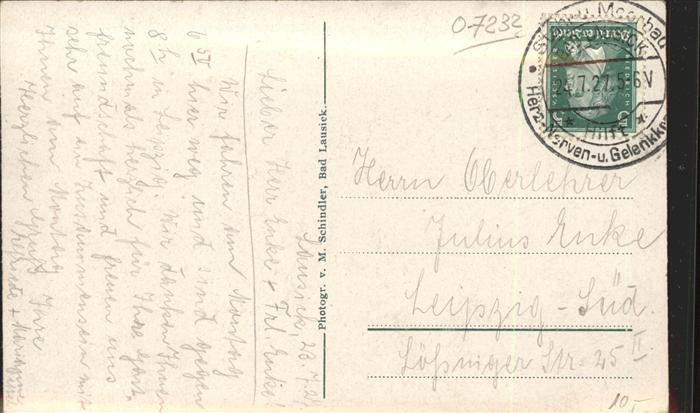 O-7232
Lausick, 23.7.27
Lieber Herr Enke + Frl. Enke!
Wir fahren am Montag
6 51 hier weg und sind gegen
8 h in Leipzig. Wir danken Ihnen
nochmals herzlich für Ihre Gast-
freundschaft und freuen uns
sehr auf ein Zusammensein mit
Ihnen am Montag Ihre
Herzlichen Gruß
+ Marianne
Photogr. v. M. Schindler, Bad Lausick.
u. Moorbad
24.7.27.5-6V
Herz-Nerven-u. Gelenkkr
Herrn Oberlehrer
Julius Enke
Leipzig-Süd.
Lößniger Str. 25 II.
10,-